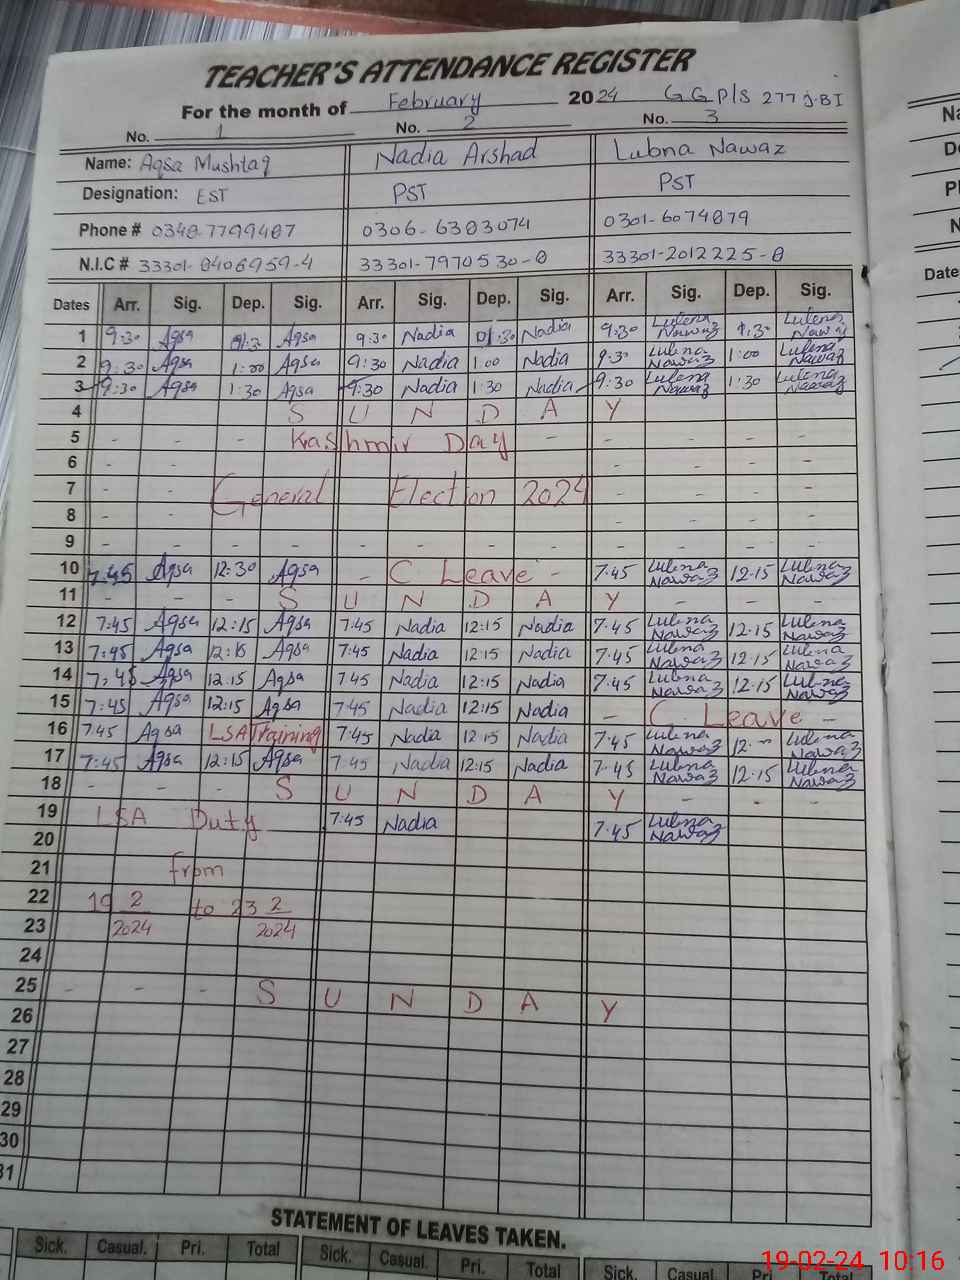 TEACHER'S ATTENDANCE REGISTER
For the month of February 2024 GGP/S 277 J.BI
No. 1 No. 2 No. 3
Name: Aqsa Mushtaq Nadia Arshad Lubna Nawaz
Designation: EST PST PST
Phone # 0340-7799407 0306-6303074 0301-6074079
N.I.C # 33301-0406959-4 33301-7970530-0 33301-2012225-0
Dates Arr. Sig. Dep. Sig. Arr. Sig. Dep. Sig. Arr. Sig. Dep. Sig.
1 9:30 Aqsa Aqsa 9:30 Nadia Nadia 9:30 Lubna Nawaz 1:30 Lubna Nawaz
2 9:30 Aqsa 1:00 Aqsa 9:30 Nadia 1:00 Nadia 9:30 Lubna Nawaz 1:00 Lubna Nawaz
3 9:30 Aqsa 1:30 Aqsa 9:30 Nadia 1:30 Nadia 9:30 Lubna Nawaz 1:30 Lubna Nawaz
4 S U N D A Y
5 - - Kashmir Day - - - - - -
6 - - - - - -
7 - - General Election 2024 - - - -
8 - - - - - -
9 - - - - - - - - - - - -
10 7:45 Aqsa 12:30 Aqsa - C Leave - 7:45 Lubna Nawaz 12:15 Lubna Nawaz
11 - - - S U N D A Y - - -
12 7:45 Aqsa 12:15 Aqsa 7:45 Nadia 12:15 Nadia 7:45 Lubna Nawaz 12:15 Lubna Nawaz
13 7:45 Aqsa 12:15 Aqsa 7:45 Nadia 12:15 Nadia 7:45 Lubna Nawaz 12:15 Lubna Nawaz
14 7:45 Aqsa 12:15 Aqsa 7:45 Nadia 12:15 Nadia 7:45 Lubna Nawaz 12:15 Lubna Nawaz
15 7:45 Aqsa 12:15 Aqsa 7:45 Nadia 12:15 Nadia - C Leave -
16 7:45 Aqsa LSA Training 7:45 Nadia 12:15 Nadia 7:45 Lubna Nawaz Lubna Nawaz
17 7:45 Aqsa 12:15 Aqsa 7:45 Nadia 12:15 Nadia 7:45 Lubna Nawaz 12:15 Lubna Nawaz
18 - - - S U N D A Y - - -
19 LSA Duty 7:45 Nadia 7:45 Lubna Nawaz
20
21 from
22 19 2/2024 to 23 2/2024
23
24
25 - - - S U N D A Y
26
27
28
29
30
31
STATEMENT OF LEAVES TAKEN.
Sick. Casual. Pri. Total Sick. Casual. Pri. Total Sick. Casual. Pri. Total
19-02-24 10:16
Dates